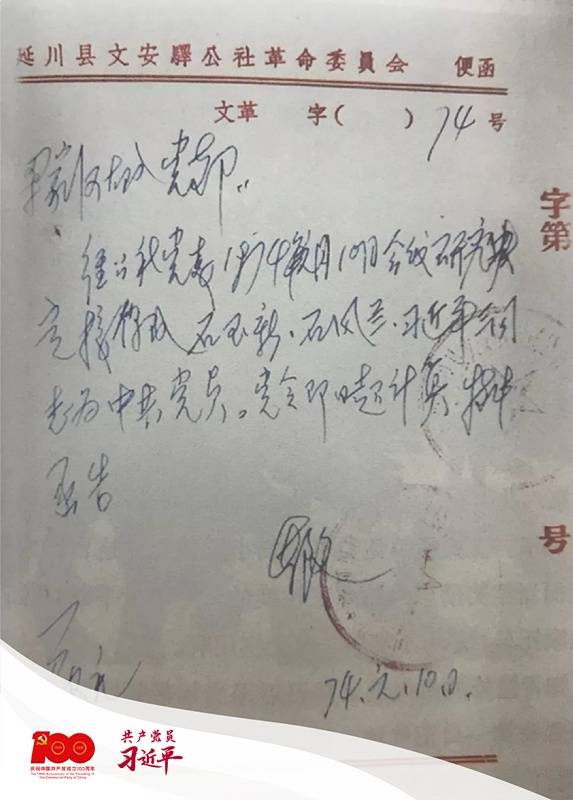 延川县文安驛公社革命委員会 便函
文革 字( ) 74 号
梁家河大队党支部:
字第
经公社党委1974年元月10日会议研究决
定接收 石玉新、石风兰、习近平三同
志为中共党员。党令即日起计算。特此
函告
号
74.元.10日.
100
庆祝中国共产党成立100周年
The 100th Anniversary of the Founding of
The Communist Party of China
共产党员
习近平